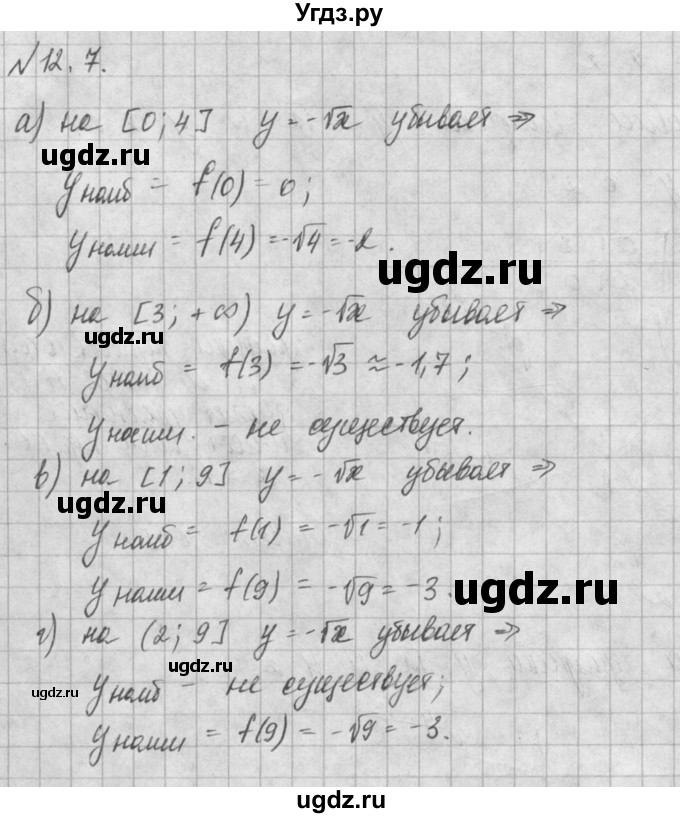 Угдз.ру
№12.7.
а) на [0;4] y=-√x убывает ⇒
ugdz.ru
yнаиб = f(0)=0;
yнаим = f(4)=-√4=-2.
ugdz.ru
б) на [3;+∞) y=-√x убывает ⇒
ugdz.ru
yнаиб = f(3)=-√3≈-1,7;
yнаим. - не существует.
в) на [1;9] y=-√x убывает ⇒
ugdz.ru
yнаиб = f(1)=-√1=-1;
yнаим = f(9)=-√9=-3.
ugdz.ru
г) на (2;9] y=-√x убывает ⇒
ugdz.ru
ugdz.ru
yнаиб - не существует;
yнаим = f(9)=-√9=-3.
ugdz.ru
ugdz.ru